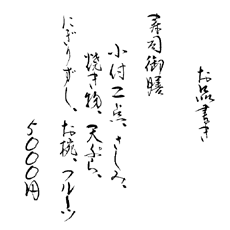 お品書き
寿司御膳
小付二点、さしみ、
焼き物、天ぷら、
にぎりずし、お椀、フルーツ
5000円